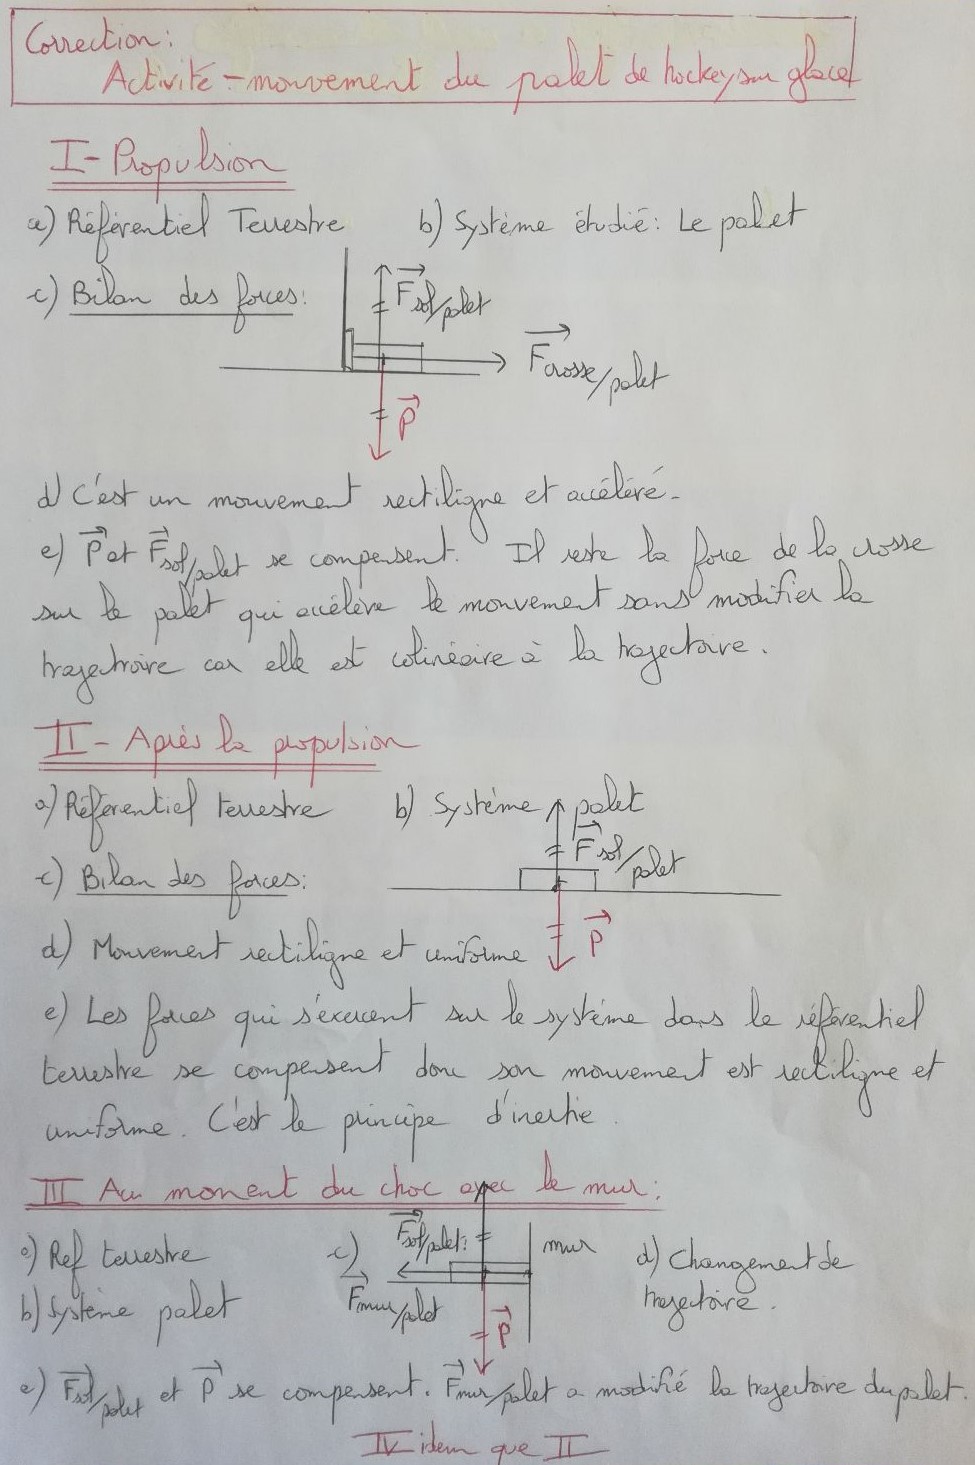 Correction:
Activité - mouvement du palet de hockey sur glace
I- Propulsion
a) Référentiel Terrestre b) Système étudié: Le palet
c) Bilan des forces:
F sol/palet
F crosse/palet
P
d) C'est un mouvement rectiligne et accéléré.
e) P et F sol/palet se compensent. Il reste la force de la crosse
sur le palet qui accélère le mouvement sans modifier la
trajectroire car elle est colinéaire à la trajectoire.
II- Après la propulsion
a) Référentiel terrestre b) Système palet
F sol/palet
c) Bilan des forces:
P
d) Mouvement rectiligne et uniforme
e) Les forces qui s'exercent sur le système dans le référentiel
terrestre se compensent donc son mouvement est rectiligne et
uniforme. C'est le principe d'inertie.
III Au moment du choc avec le mur:
a) Ref terrestre
b) Système palet
c)
F sol/palet
mur
F mur/palet
P
d) Changement de
trajectoire.
e) F sol/palet et P se compensent. F mur/palet a modifié la trajectoire du palet.
IV idem que II